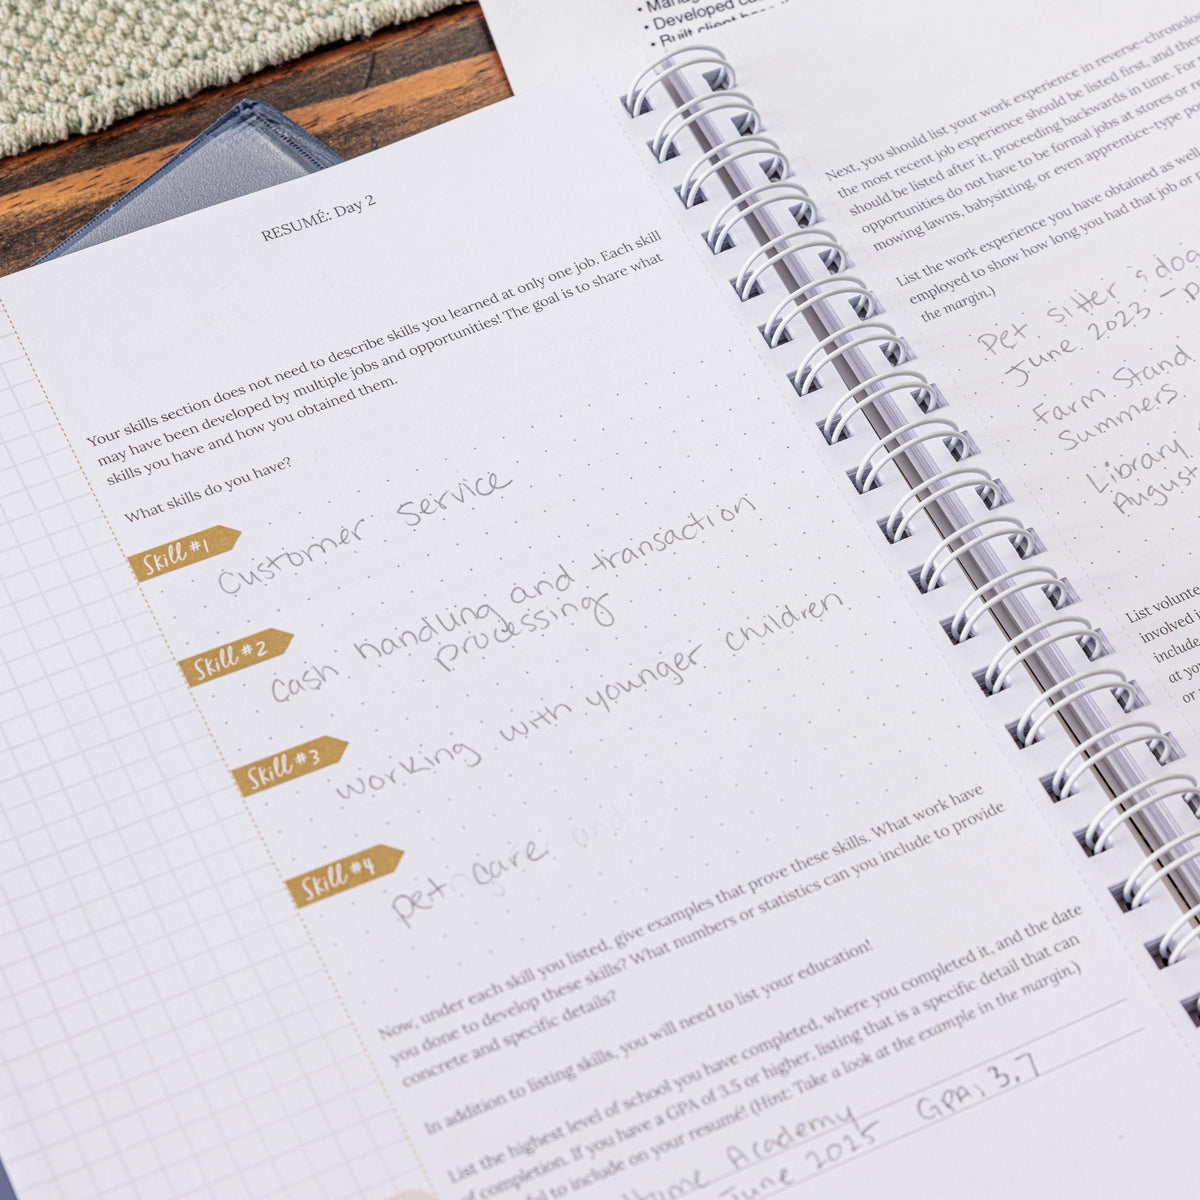 RESUMÉ: Day 2
Your skills section does not need to describe skills you learned at only one job. Each skill
may have been developed by multiple jobs and opportunities! The goal is to share what
skills you have and how you obtained them.
What skills do you have?
Skill #1
Customer service
Skill #2
Cash handling and transaction
processing
Skill #3
Working with younger children
Skill #4
pet care and
Now, under each skill you listed, give examples that prove these skills. What work have
you done to develop these skills? What numbers or statistics can you include to provide
concrete and specific details?
In addition to listing skills, you will need to list your education!
List the highest level of school you have completed, where you completed it, and the date
of completion. If you have a GPA of 3.5 or higher, listing that is a specific detail that can
to include on your resumé! (Hint: Take a look at the example in the margin.)
Academy GPA: 3.7
June 2025
• Developed
• Built client
Next, you should list your work experience in
the most recent job experience should be listed first, and
should be listed after it, proceeding backwards in time. For
opportunities do not have to be formal jobs at stores or
mowing lawns, babysitting, or even apprentice-type
List the work experience you have obtained as well
employed to show how long you had that job or
the margin.)
Pet sitter & dog
June 2023 –
Farm Stand
Summers
Library
August
List
involved
include
at
or